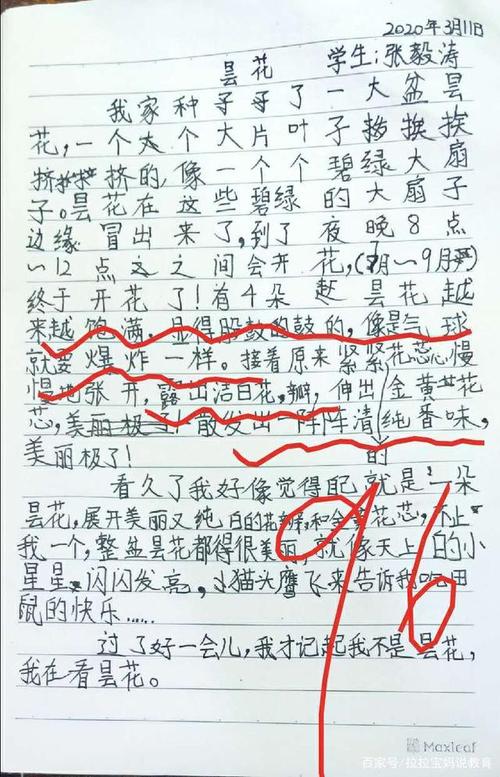 2020年3月11日
昙花 学生:张毅涛
我家种子哥了一大盆昙
花,一个大个大片叶子挨挨挨
挤挤挤挤的,像一个个碧绿大扇
子。昙花在这些碧绿的大扇子
边缘冒出来了,到了夜晚8点
～12点之之间会开花,(7月～9月)
终于开花了!有4朵昙花越
来越饱满,显得股鼓的鼓的,像是气球
就要爆炸一样。接着原来紧紧花芯慢
慢地张开,露出洁白花,瓣,伸出金黄花
芯,美丽极了!散发出一阵阵清纯香味,
美丽极了! 的
看久了我好像觉得自己就是一朵
昙花,展开美丽又纯白的花瓣,和金黄花芯,不止
我一个,整盆昙花都得很美丽,就像天上的小
星星,闪闪发亮,小猫头鹰飞来告诉我吃田
鼠的快乐……
过了好一会儿,我才记起我不是昙花,
我在看昙花。
96
Maxleaf
百家号/拉拉宝妈说教育